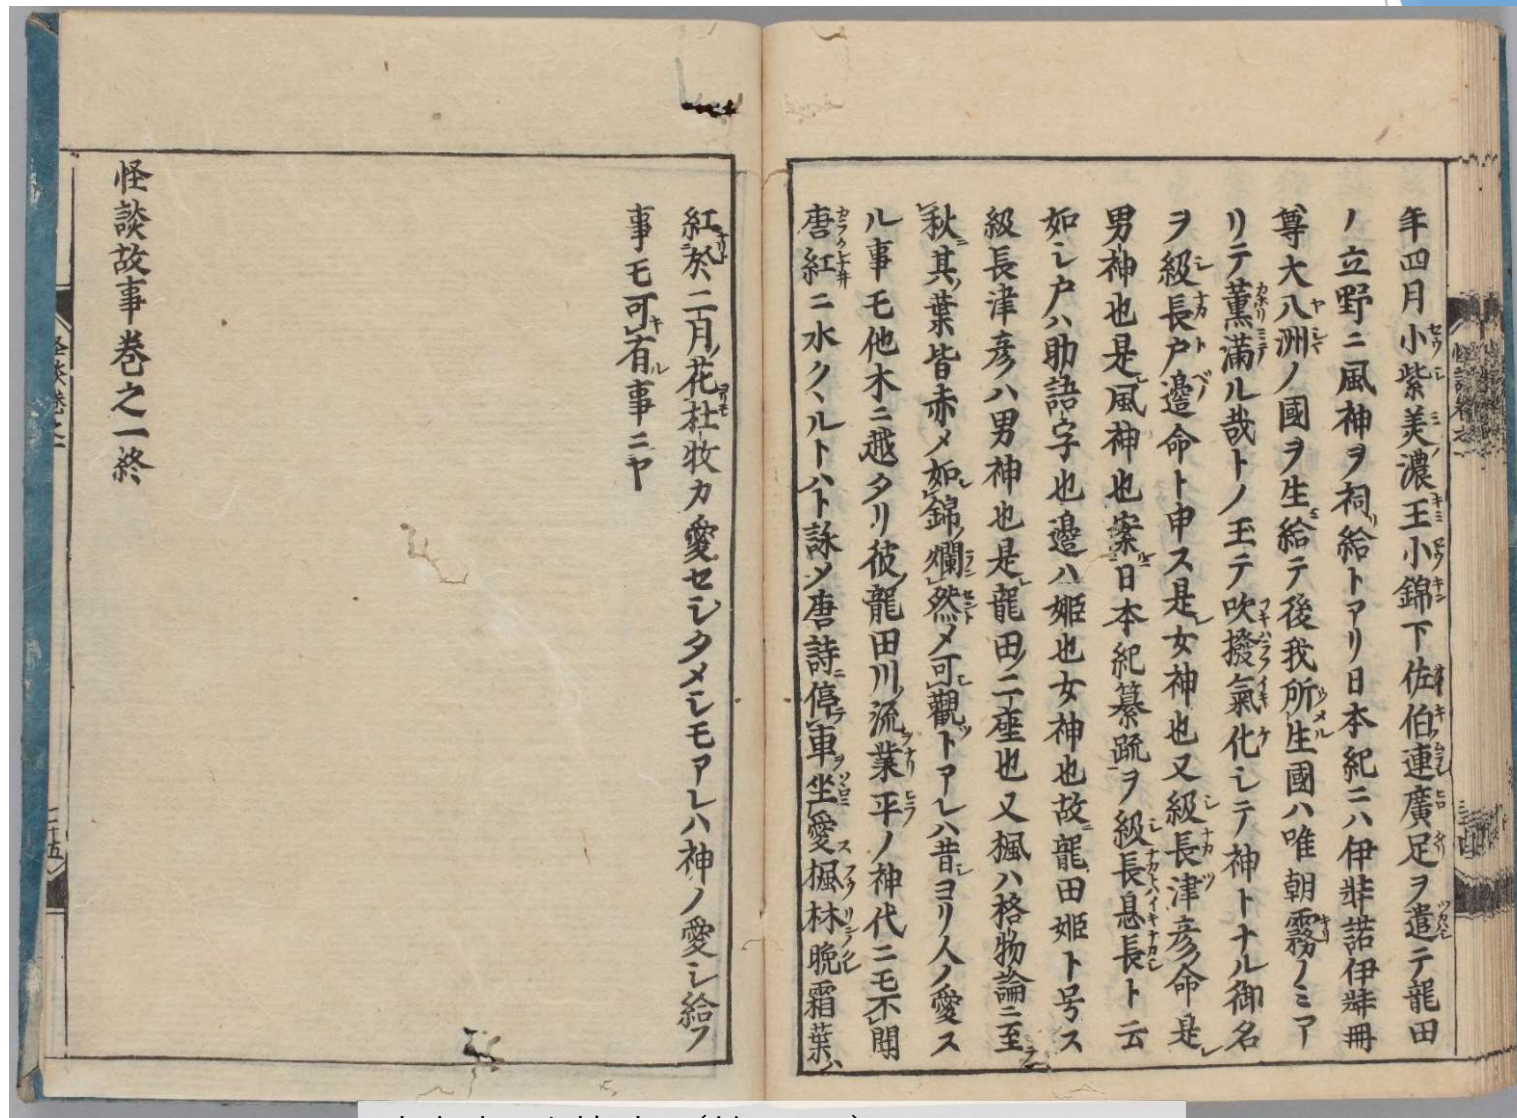 年四月小紫美濃王小錦下佐伯連廣足ヲ遣テ龍田
ノ立野ニ風神ヲ祠給トアリ日本紀ニハ伊弉諾伊弉冊
尊大八洲ノ國ヲ生給テ後我所生國ハ唯朝霧ノミア
リテ薫滿ル哉トノ玉テ吹撥氣化シテ神トナル御名
ヲ級長戸邉命ト申ス是女神也又級長津彦命是
男神也是風神也案日本紀纂疏ヲ級長息長ト云
如シ戸ハ助語字也邉ハ姫也女神也故龍田姫ト号ス
級長津彦ハ男神也是龍田ノ二座也又楓ハ格物論ニ至
秋其葉皆赤メ如錦爛然メ可觀トアレハ昔ヨリ人ノ愛ス
ル事モ他木ニ越タリ彼龍田川ノ流業平ノ神代ニモ不聞
唐紅ニ水クヽルトハト詠メ唐詩停車坐愛楓林晩霜葉ハ
紅於二月花杜牧カ愛セシタメシモアレハ神ノ愛シ給フ
事モ可有ル事ニヤ
怪談故事巻之一終
二十五